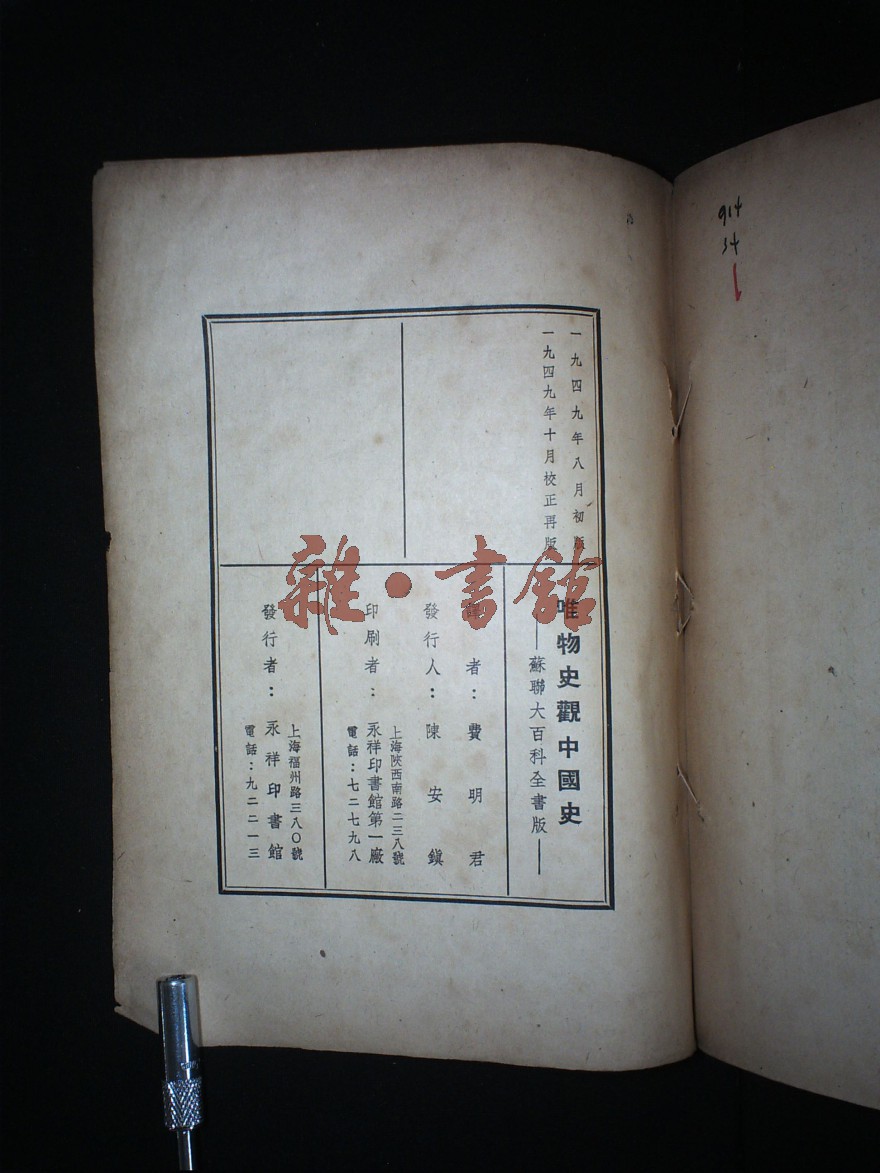 一九四九年八月初版
一九四九年十月校正再版
唯物史觀中國史
——蘇聯大百科全書版——
譯者：費明君
發行人：陳安鎭
上海陝西南路二三八號
印刷者：永祥印書館第一廠
電話：七二七九八
上海福州路三八〇號
發行者：永祥印書館
電話：九二二一三
雜·書館
914
34